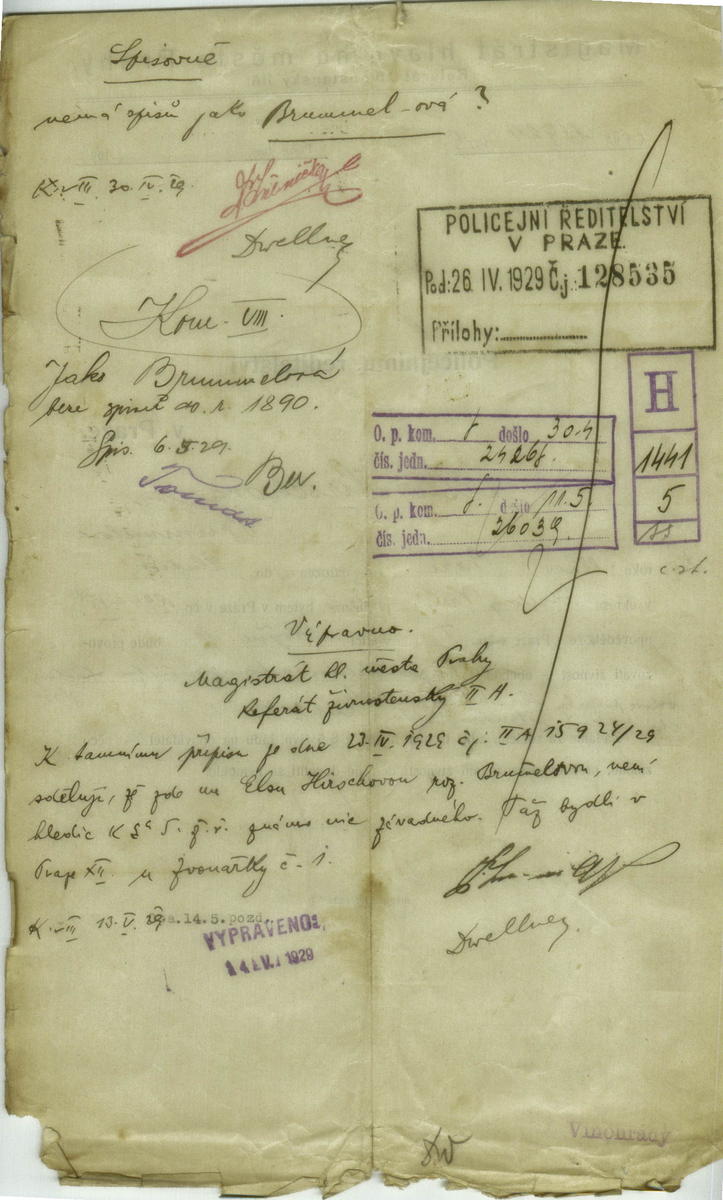 Spisovně
nemá spisů jako Brummel-ová?
K. VIII 30. IV. 29.
Dwellney
POLICEJNÍ ŘEDITELSTVÍ
V PRAZE.
Pod: 26. IV. 1929 Č.j.: 128535
Přílohy:
Kom. VIII.
H
1441
5
Jako Brummelová
bere spisů do r. 1890.
Spis. 6.5.29.
Ber.
Tomas
O. p. kom. 8 došlo 30.4
čís. jedn. 24268.
O. p. kom. 8. došlo 11.5.
čís. jedn. 26039.
Výpravno.
Magistrát hl. města Prahy
Referát živnostenský II A.
K tamnímu přípisu ze dne 23. IV. 1929 čj: II A 15924/29
sděluji, že zde na Elsu Hirschovou roz. Brumelovou, není
hledíc k § 5. ž. ř. známo nic závadného. Táž bydlí v
Praze XII. u Zvonařky č. 1.
K. VIII 13. V. 29
14.5. pozd.
VYPRAVENO:
14. V. 1929
Dwellney.
Vinohrady